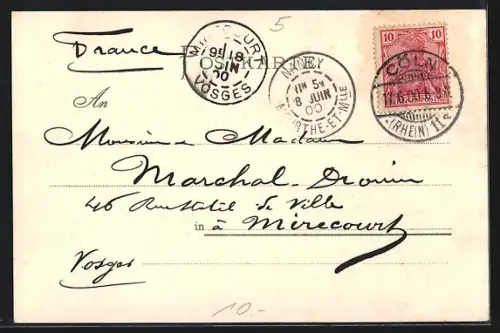 5
France
POSTKARTE
MIRECOURT
6E 19
JUIN
00
VOSGES
NANCY
8 JUIN
00
MEURTHE-ET-MLLE
10 10
CÖLN
17.6.00.
(RHEIN) 11
An
Monsieur Madame
Marchal-Drouin
46 Rue de Ville
in à Mirecourt
Vosges
10.-